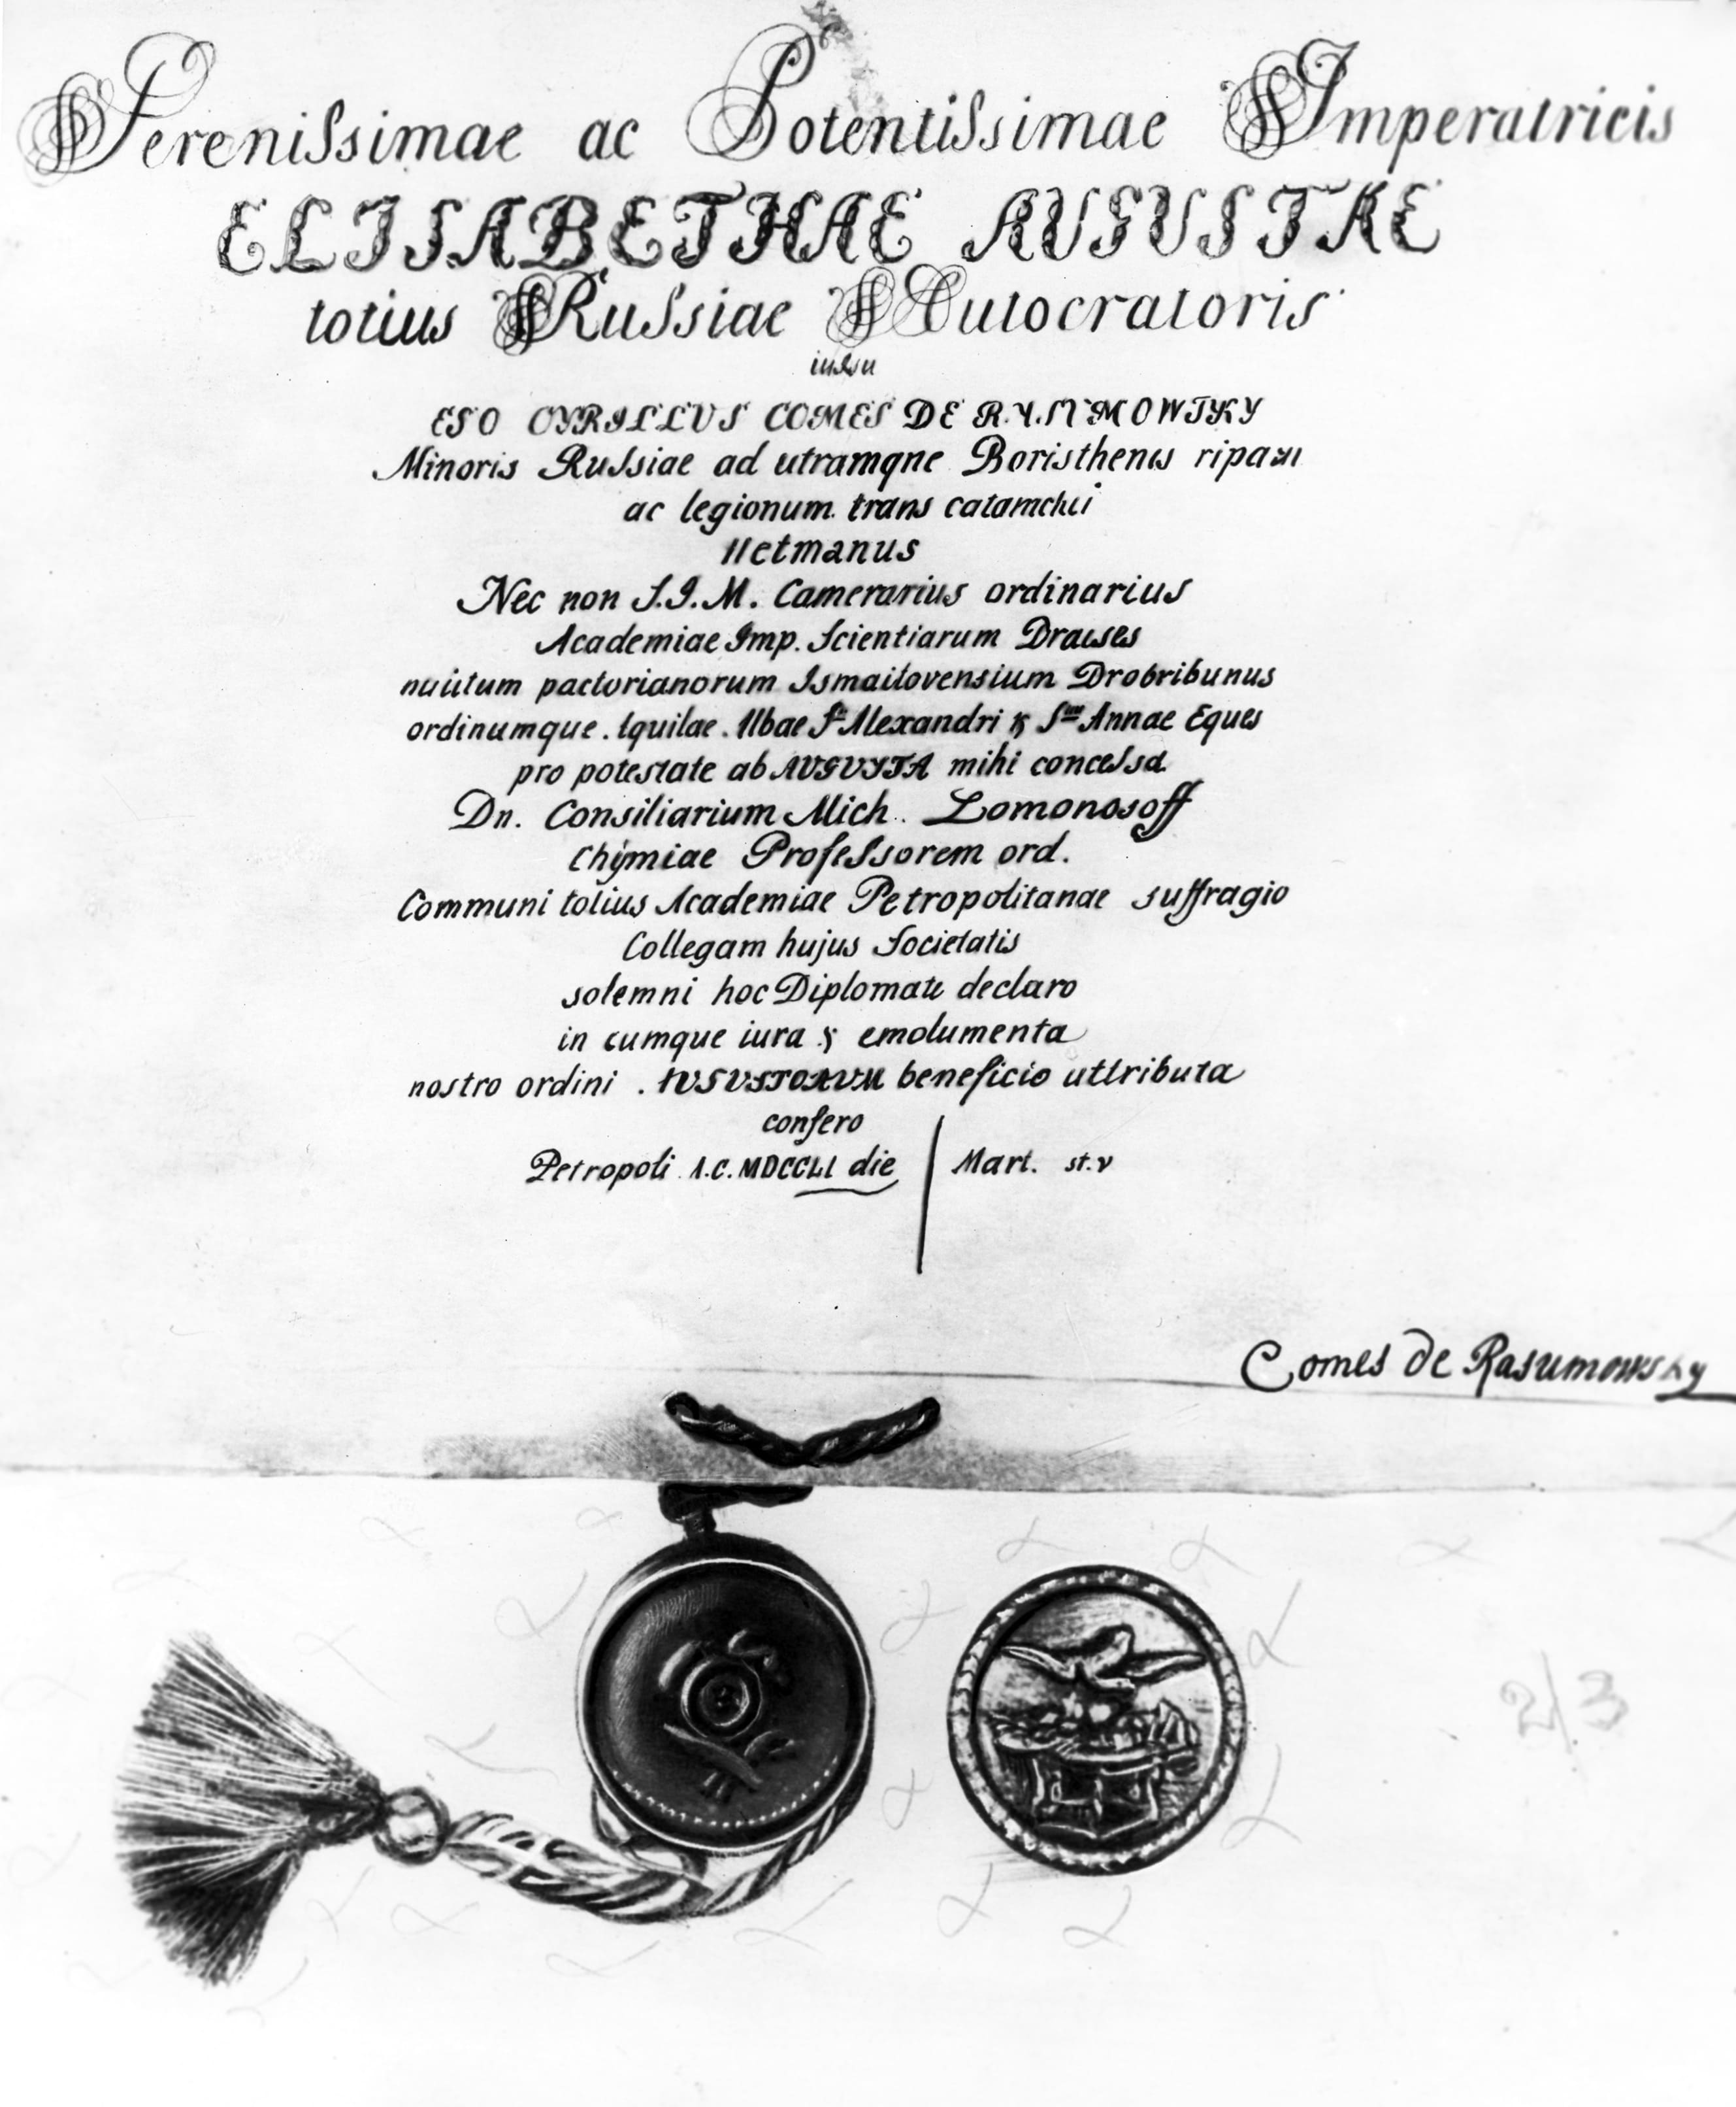 Serenissimae ac Potentissimae Imperatricis
ELISABETHAE AUGUSTAE
totius Russiae Autocratoris
iussu
EGO CYRILLVS COMES DE RASUMOWSKY
Minoris Russiae ad utramqne Boristhenis ripam
ac legionum trans catamchii
Hetmanus
Nec non S.I.M. Camerarius ordinarius
Academiae Imp. Scientiarum Draeses
pactorianorum Ismailovensium Drotribunus
ordinumque Aquilae Albae Sti Alexandri & Stae Annae Eques
pro potestate ab AVGVSTA mihi concessa
Dn. Consiliarium Mich. Lomonosoff
Chymiae Professorem ord.
Communi totius Academiae Petropolitanae suffragio
Collegam hujus Societatis
solemni hoc Diplomate declaro
in cumque iura & emolumenta
nostro ordini AUGUSTORUM beneficio attributa
confero
Petropoli A.C. MDCCLI die | Mart. st. v
Comes de Rasumowsky
2/3